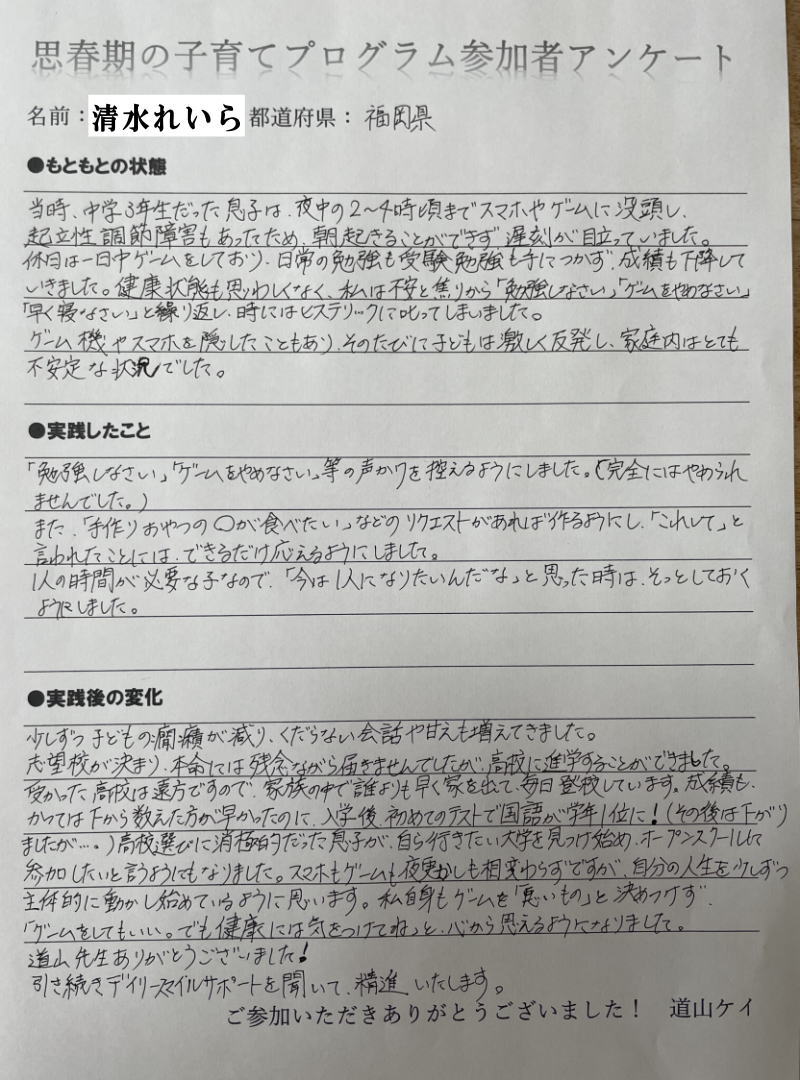 思春期の子育てプログラム参加者アンケート
名前：清水れいら 都道府県： 福岡県
●もともとの状態
当時、中学3年生だった息子は、夜中の2〜4時頃までスマホやゲームに没頭し、
起立性調節障害もあったため、朝起きることができず、遅刻が目立っていました。
休日は一日中ゲームをしており、日常の勉強も受験勉強も手につかず、成績も下降して
いきました。健康状態も思わしくなく、私は不安と焦りから「勉強しなさい」「ゲームをやめなさい」
「早く寝なさい」と繰り返し、時にはヒステリックに叱ってしまいました。
ゲーム機やスマホを隠したこともあり、そのたびに子どもは激しく反発し、家庭内はとても
不安定な状況でした。
●実践したこと
「勉強しなさい」「ゲームをやめなさい」等の声かけを控えるようにしました。（完全にはやめられ
ませんでした。）
また、「手作りおやつの〇が食べたい」などのリクエストがあれば作るようにし、「これして」と
言われたことには、できるだけ応えるようにしました。
1人の時間が必要な子なので、「今は1人になりたいんだな」と思った時は、そっとしておく
ようにしました。
●実践後の変化
少しずつ子どもの癇癪が減り、くだらない会話や甘えも増えてきました。
志望校が決まり、本命には残念ながら届きませんでしたが、高校に進学することができました。
受かった高校は遠方ですので、家族の中で誰よりも早く家を出て、毎日登校しています。成績も、
かつては下から数えた方が早かったのに、入学後、初めてのテストで国語が学年1位に！（その後は下がり
ましたが…。）高校選びに消極的だった息子が、自ら行きたい大学を見つけ始め、オープンスクールに
参加したいと言うようにもなりました。スマホもゲームも夜更かしも相変わらずですが、自分の人生を少しずつ
主体的に動かし始めているように思います。私自身もゲームを「悪いもの」と決めつけず、
「ゲームをしてもいい。でも健康には気をつけてね」と、心から思えるようになりました。
道山先生ありがとうございました！
引き続きデイリースマイルサポートを聞いて、精進いたします。
ご参加いただきありがとうございました！ 道山ケイ